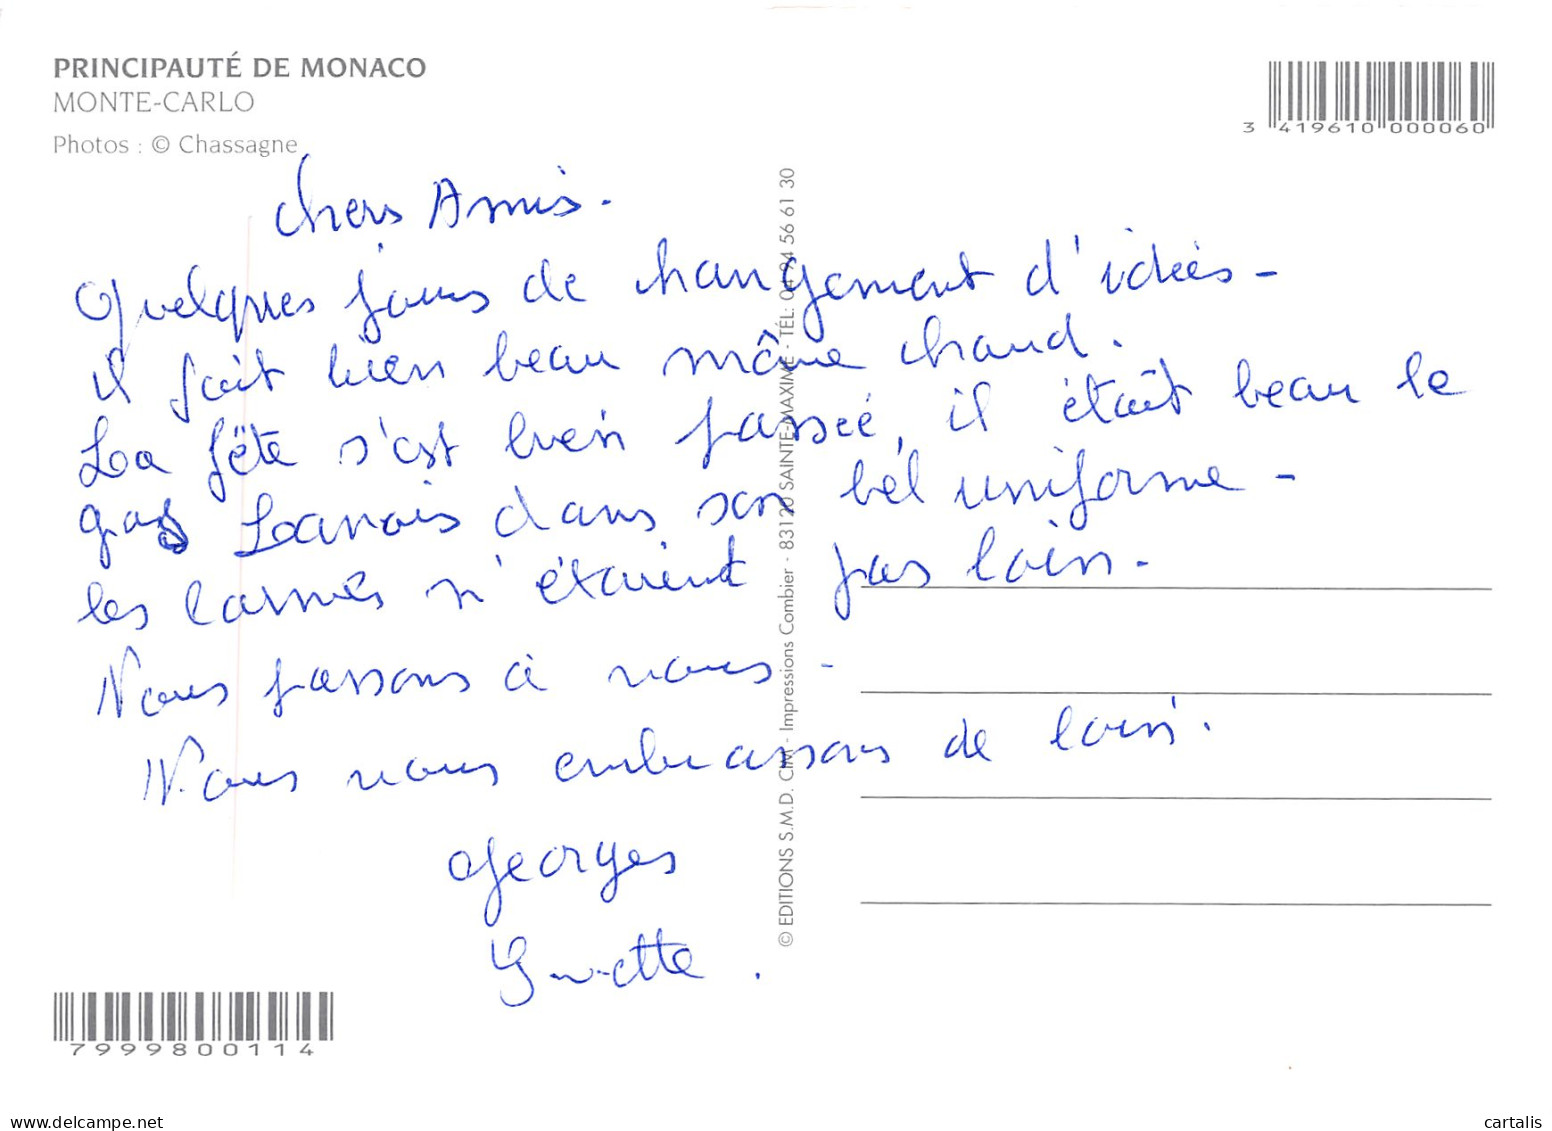 PRINCIPAUTÉ DE MONACO
MONTE-CARLO
Photos : © Chassagne
3 419610 000060
chers Amis.
Quelques jours de changement d'idées -
il fait bien beau même chaud.
La fête s'est bien passée, il était beau le
gas dans son bel uniforme -
les larmes n'étaient pas loin.
Nous passons à nous -
Nous vous embrassons de loin.
Georges
© EDITIONS S.M.D. CIM - Impressions Combier - 83120 SAINTE-MAXIME - TÉL: 04 94 56 61 30
7999800114
delcampe.net
cartalis